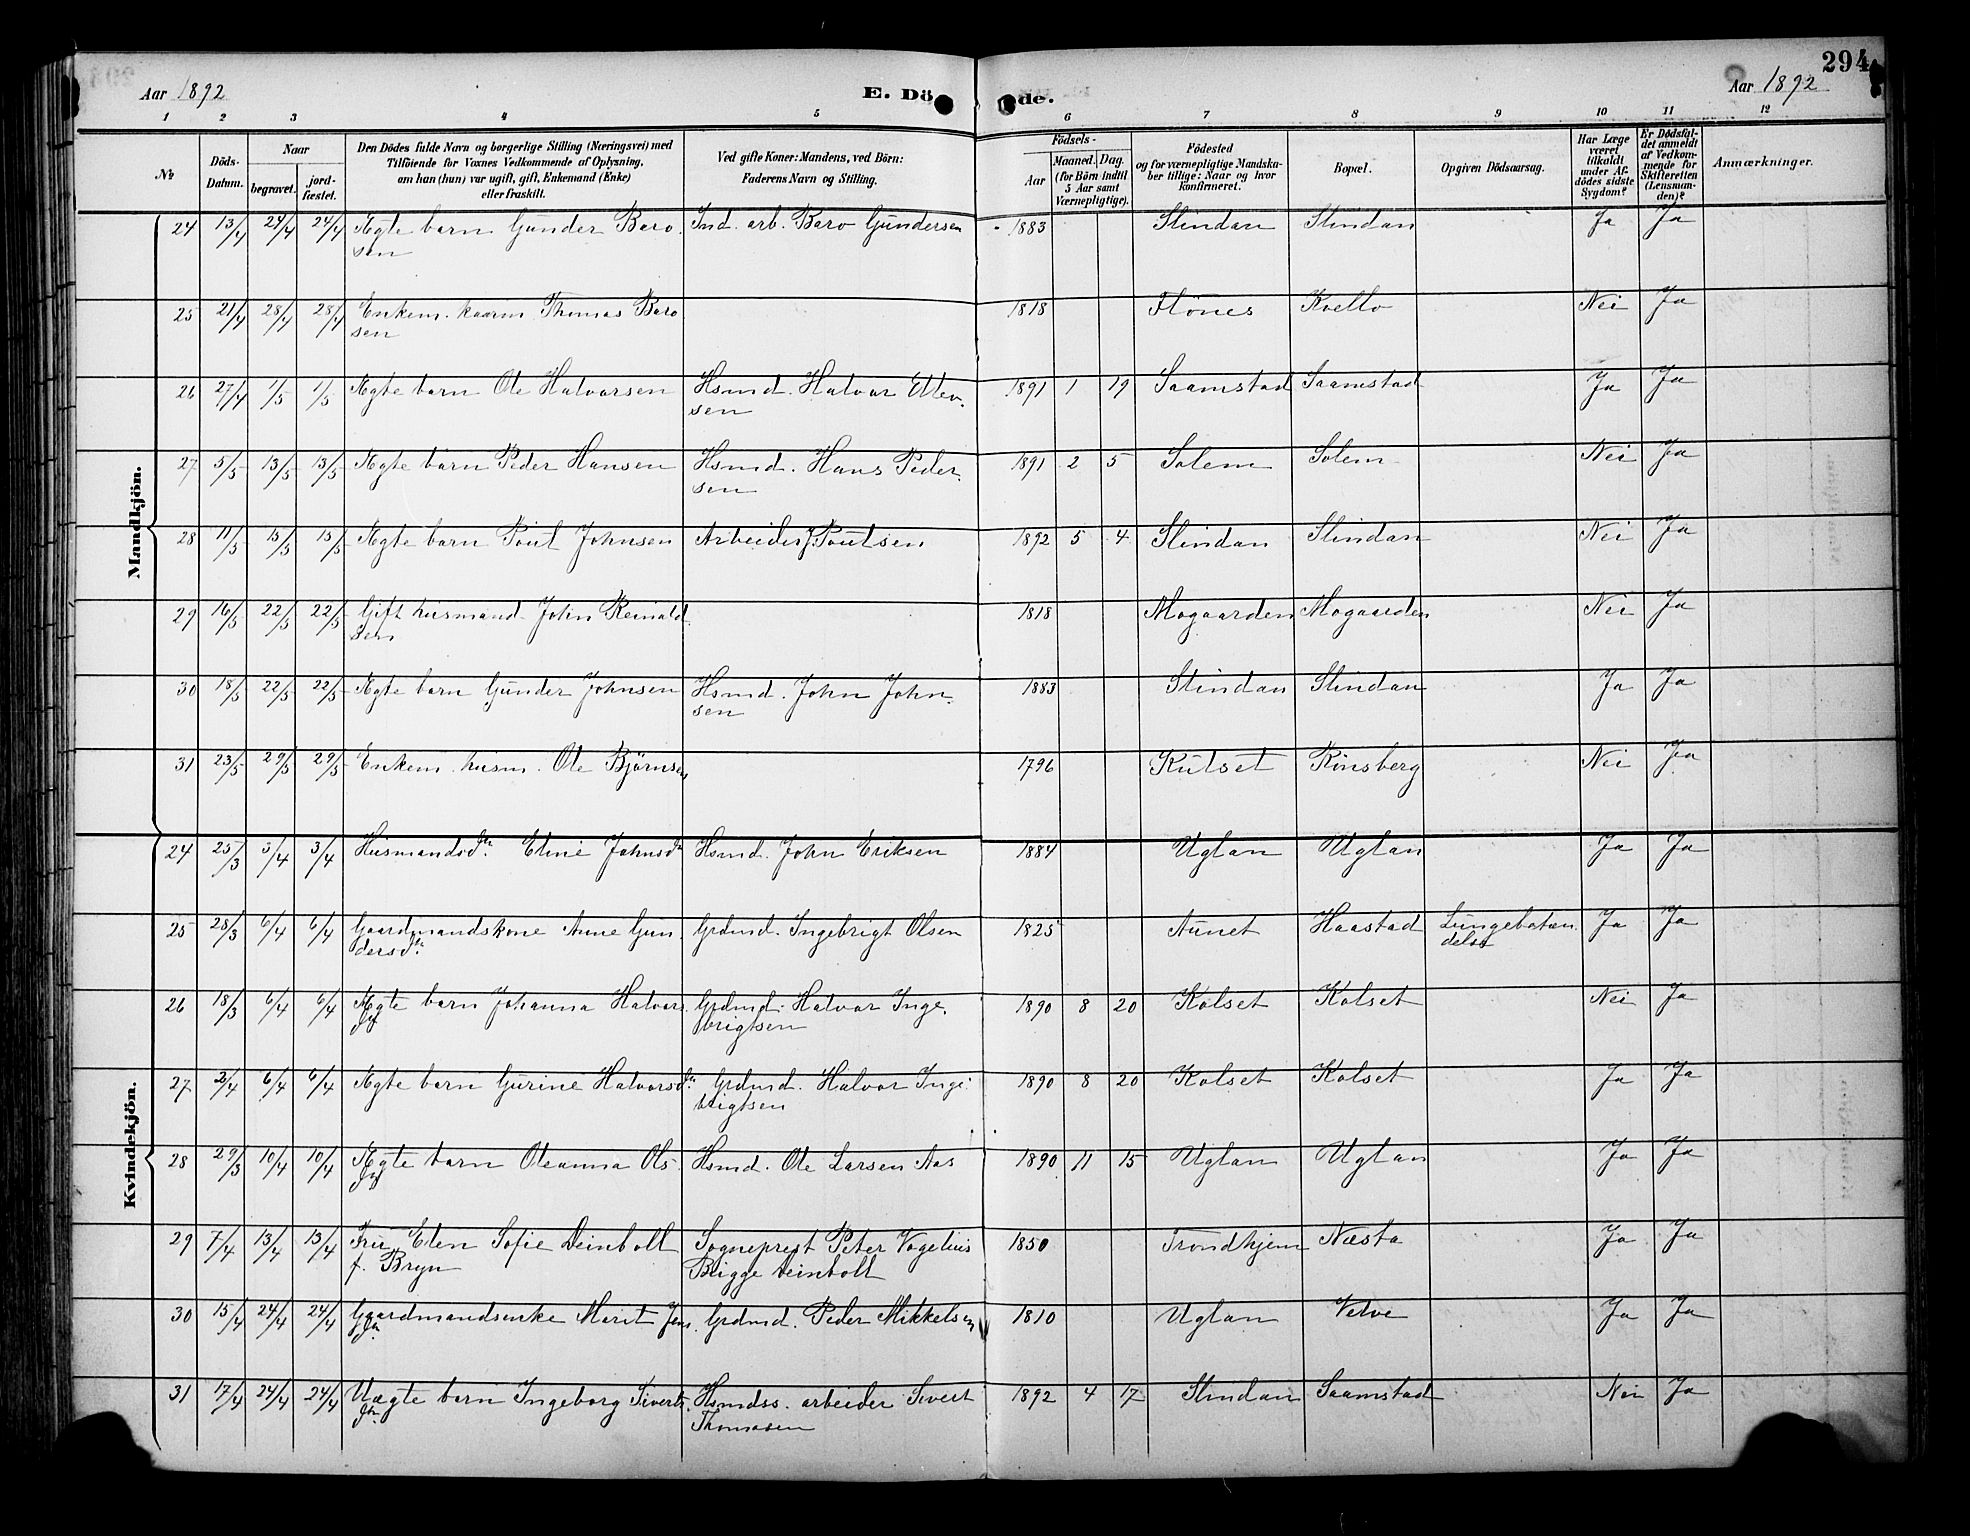 294
Aar 1892
E. Döde.
Aar 1892
1 2 3 4 5 6 7 8 9 10 11 12
№
Döds-Datum.
Naar
begravet.
jord-fæstet.
Den Dödes fulde Navn og borgerlige Stilling (Næringsvei) med
Tilföiende for Voxnes Vedkommende af Oplysning,
om han (hun) var ugift, gift, Enkemand (Enke)
eller fraskilt.
Ved gifte Koner: Mandens, ved Börn:
Faderens Navn og Stilling.
Födsels-
Aar
Maaned. Dag.
(for Börn indtil
5 Aar samt
Værnepligtige).
Födested
og for værnepligtige Mandska-
ber tillige: Naar og hvor
konfirmeret.
Bopæl.
Opgiven Dödsaarsag.
Har Læge
været
tilkaldt
under Af-
dödes sidste
Sygdom?
Er Dödsfal-
det anmeldt
af Vedkom-
mende for
Skifteretten
(Lensman-
den)?
Anmærkninger.
Mandkjön.
24 13/4 24/4 24/4 Ægte barn Gunder Baro- Ind. arb. Baro Gundersen 1883 Slindan Slindan Ja Ja
sen
25 21/4 28/4 28/4 Enkem. kaarm. Thomas Baro 1818 Flönes Kvello Nei Ja
sen
26 27/4 1/5 1/5 Ægte barn Ole Halvorsen Hsmd. Halvor Ellev- 1891 1 19 Saamstad Saamstad Ja Ja
sen
27 5/5 13/5 13/5 Ægte barn Peder Hansen Hsmd. Hans Peder- 1891 2 5 Solem Solem Nei Ja
sen
28 11/5 15/5 15/5 Ægte barn Poul Johnsen Arbeider J. Poulsen 1892 5 4 Slindan Slindan Nei Ja
29 16/5 22/5 22/5 Gift husmand John Reinald 1818 Mogaarden Mogaarden Nei Ja
sen
30 18/5 22/5 22/5 Ægte barn Gunder Johnsen Hsmd. John John- 1883 Slindan Slindan Ja Ja
sen
31 23/5 29/5 29/5 Enkem. husm. Ole Björnsen 1796 Kulset Rönsberg Nei Ja
Kvindekjön.
24 25/3 3/4 3/4 Husmandsd. Eline Johnsd Hsmd. John Eriksen 1884 Uglan Uglan Ja Ja
25 28/3 6/4 6/4 Gaardmandskone Anne Gun- Grdmd. Ingebrigt Olsen 1825 Aunet Haastad Lungebetæn- Ja Ja
dersd. delse
26 18/3 6/4 6/4 Ægte barn Johanna Halvors Grdmd. Halvor Inge- 1890 8 20 Kolset Kolset Nei Ja
brigtsen
27 2/4 6/4 6/4 Ægte barn Gurine Halvorsd. Grdmd. Halvor Inge- 1890 8 20 Kolset Kolset Ja Ja
brigtsen
28 29/3 10/4 10/4 Ægte barn Oleanna Ols- Hsmd. Ole Larsen Aas 1890 11 15 Uglan Uglan Ja Ja
29 7/4 13/4 13/4 Fru Elen Sofie Deinboll Sogneprest Peter Vogelius 1850 Trondhjem Næsta Ja Ja
f. Bryn Brigge Deinboll
30 15/4 24/4 24/4 Gaardmandsenke Marit Jens Grdmd. Peder Mikkelsen 1810 Uglan Velve Ja Ja
31 17/4 24/4 24/4 Uægte barn Ingeborg Siverts Hsmdss. arbeider Sivert 1892 4 17 Slindan Saamstad Nei Ja
Thomasen